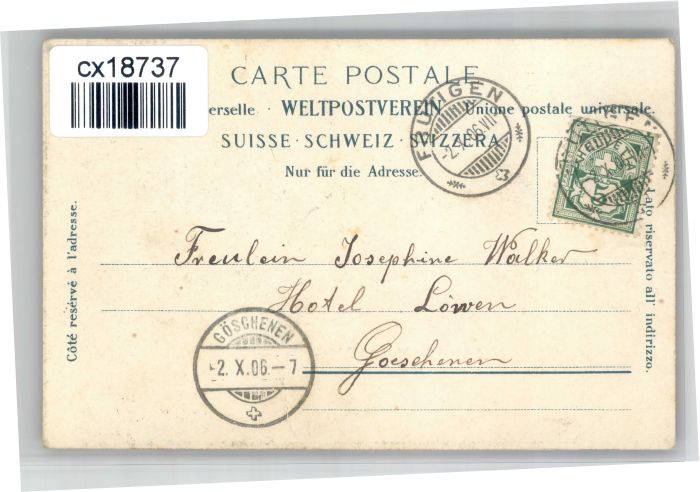 cx18737
CARTE POSTALE
erselle · WELTPOSTVEREIN · Unione postale universale.
SUISSE · SCHWEIZ · SVIZZERA
Nur für die Adresse.
FRUTIGEN
-2.X.06.VII
Côté reservé à l'adresse.
Lato riservato all' indirizzo.
Freulein Josephine Walker
Hotel Löwen
Goeschenen
GÖSCHENEN
2. X. 06.-7